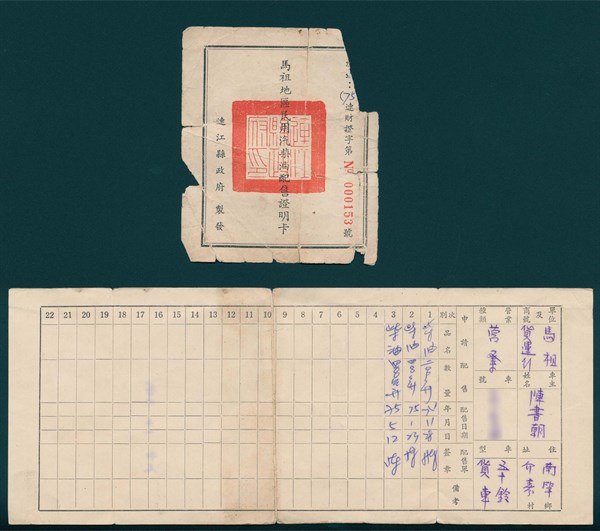 (75)連財證字第 № 000153 號
馬祖地區民用汽柴油配售證明卡
連江縣政府 製發
單位及商號 馬祖貨運行
車主姓名 陳書朝
住址 南竿鄉 介壽村
營業種類 營業
車號
車型 五十鈴貨車
申請配售
次別 品名 數量 配售日期 年 月 日 配售單簽章 備考
1 柴油
2 柴油 75 1 23
3 柴油 75 5 12
4
5
6
7
8
9
10
11
12
13
14
15
16
17
18
19
20
21
22